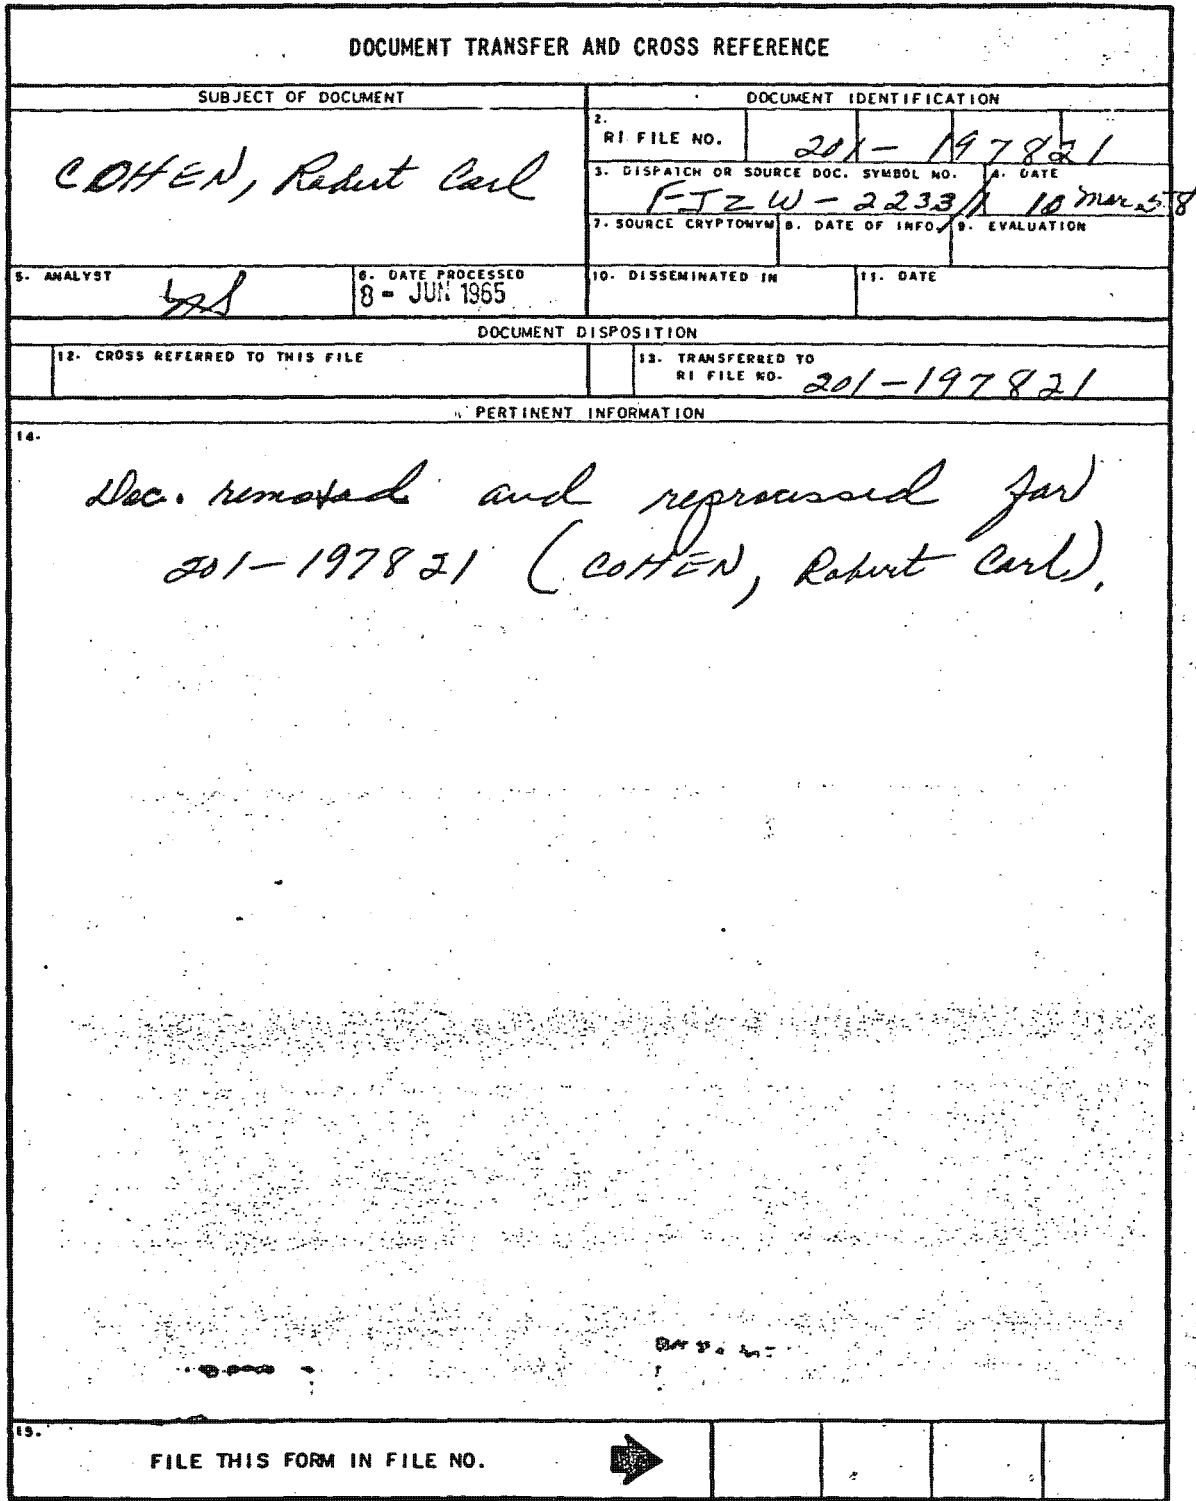 DOCUMENT TRANSFER AND CROSS REFERENCE
SUBJECT OF DOCUMENT
DOCUMENT IDENTIFICATION
COHEN, Robert Carl
2.
RI FILE NO.
201-197821
3. DISPATCH OR SOURCE DOC. SYMBOL NO.
4. DATE
FJZW-2233/1
10 Mar 58
7. SOURCE CRYPTONYM
8. DATE OF INFO.
9. EVALUATION
5. ANALYST
6. DATE PROCESSED
8 - JUN 1965
10. DISSEMINATED IN
11. DATE
DOCUMENT DISPOSITION
12. CROSS REFERRED TO THIS FILE
13. TRANSFERRED TO
RI FILE NO.
201-197821
PERTINENT INFORMATION
14.
Doc. removed and reprocessed for
201-197821 (COHEN, Robert Carl).
15.
FILE THIS FORM IN FILE NO.